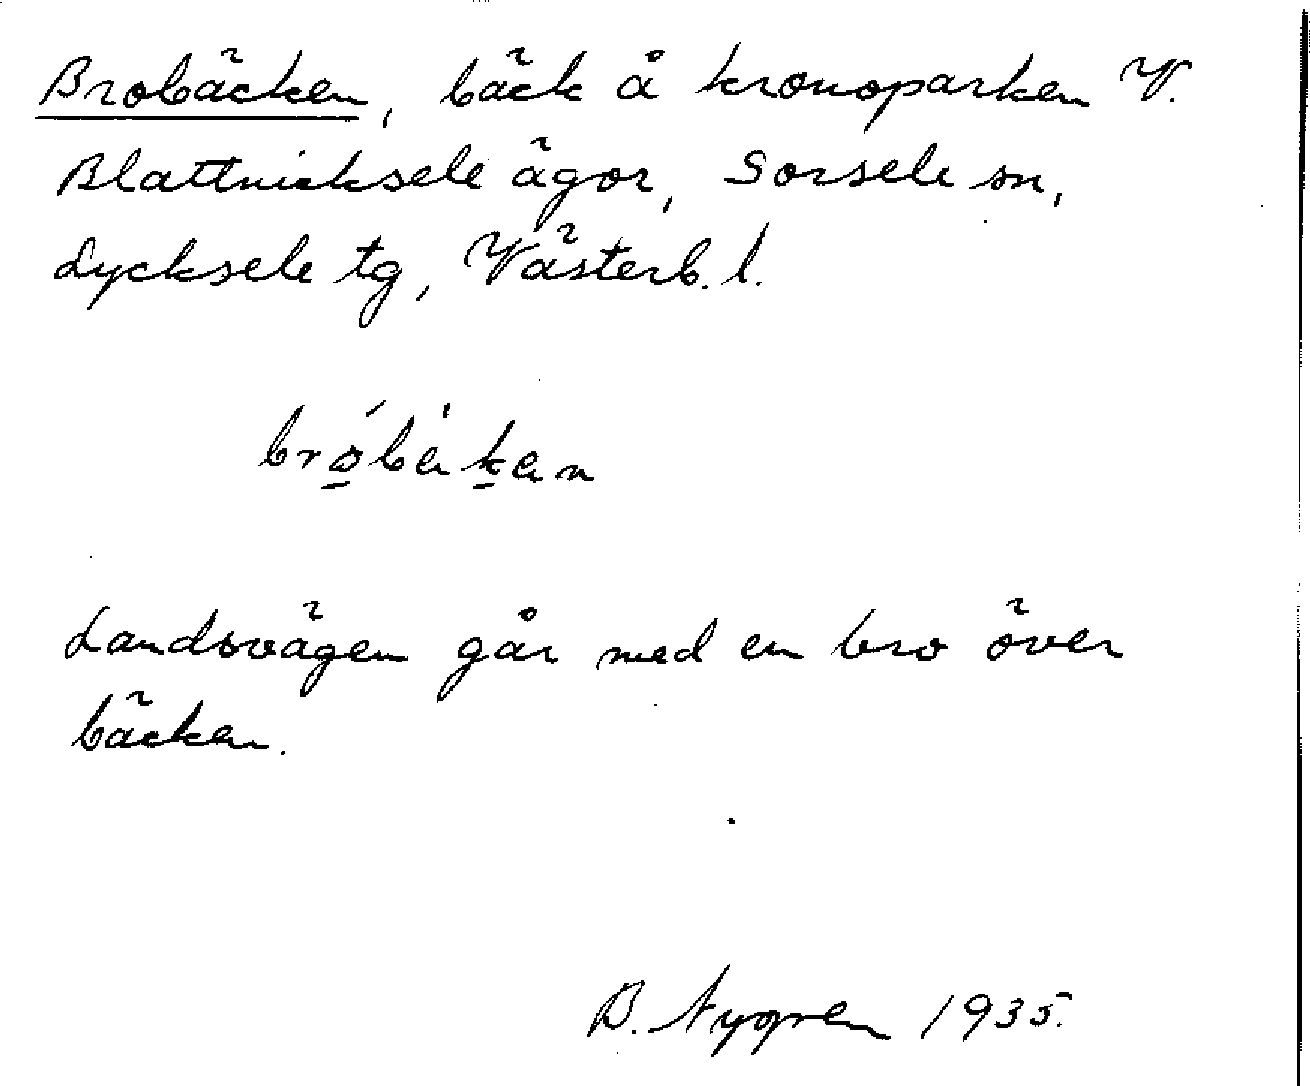 Brobäcken, bäck å kronoparken V.
Blattnicksele ägor, Sorsele sn,
Lycksele tg, Västerb. l.
bro̲´be̍k̲en
Landsvägen går med en bro över
bäcken.
B. Nygren 1935.